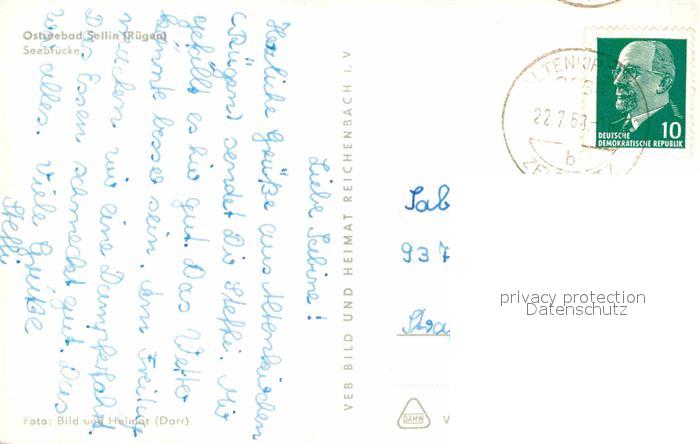 Ostseebad Sellin (Rügen)
Seebrücke
Liebe Sabine!
Herzliche Grüße aus Altenkirchen
(Rügen) sendet Dir Steffi. Mir
gefällt es hier gut. Das Wetter
könnte besser sein. Am Freitag
machen wir eine Dampferfahrt.
Das Essen schmeckt gut. Das
wär alles. Viele Grüße
Steffi
Foto: Bild und Heimat (Darr)
VEB BILD UND HEIMAT REICHENBACH i. V
LTENKIR
22.7.68
b
DEUTSCHE
DEMOKRATISCHE REPUBLIK
10
Sab
937
privacy protection
Datenschutz
DAHW
V